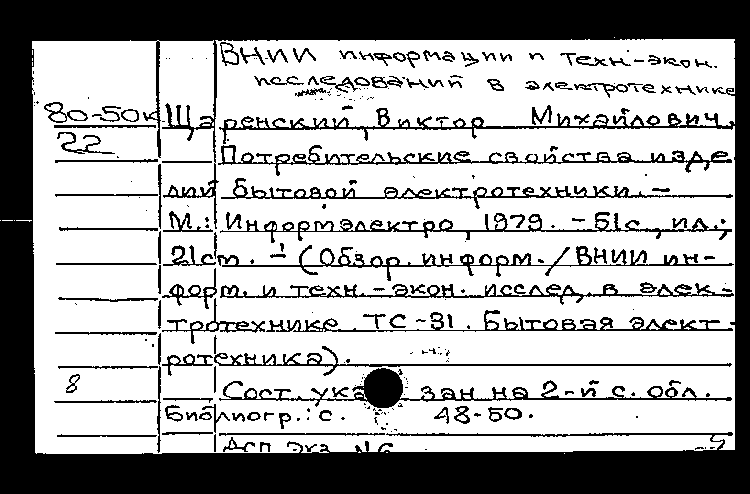 ВНИИ информации и техн-экон.
исследований в электротехнике
80-50к Щаренский, Виктор Михайлович.
22 Потребительские свойства изде
лий бытовой электротехники. –
М.: Информэлектро, 1979. – 51с., ил.;
21см. – (Обзор. информ. / ВНИИ ин-
форм. и техн.-экон. исслед. в элек-
тротехнике. ТС-31. Бытовая элект-
ротехника).
8 Сост. указан на 2-й с. обл.
Библиогр.: с. 48-50.
ДСП Экз. №6